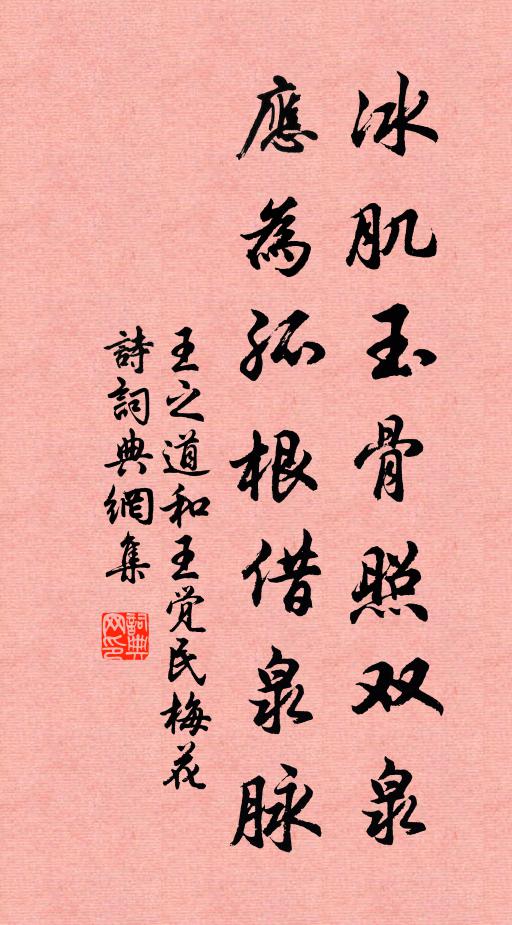 冰肌玉骨照双泉
應為孤根借泉脉
王之道和王觉民梅花
詩詞典網集
詞典网印